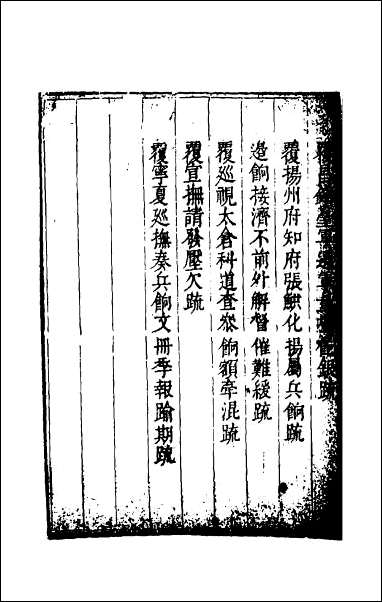 覆揚州府知府張麒化揚屬兵餉疏
邊餉接濟不前外解督催難緩疏
覆巡視太倉科道查參餉額牽混疏
覆宣撫請發壓欠疏
覆寧夏巡撫奏兵餉文冊季報踰期疏